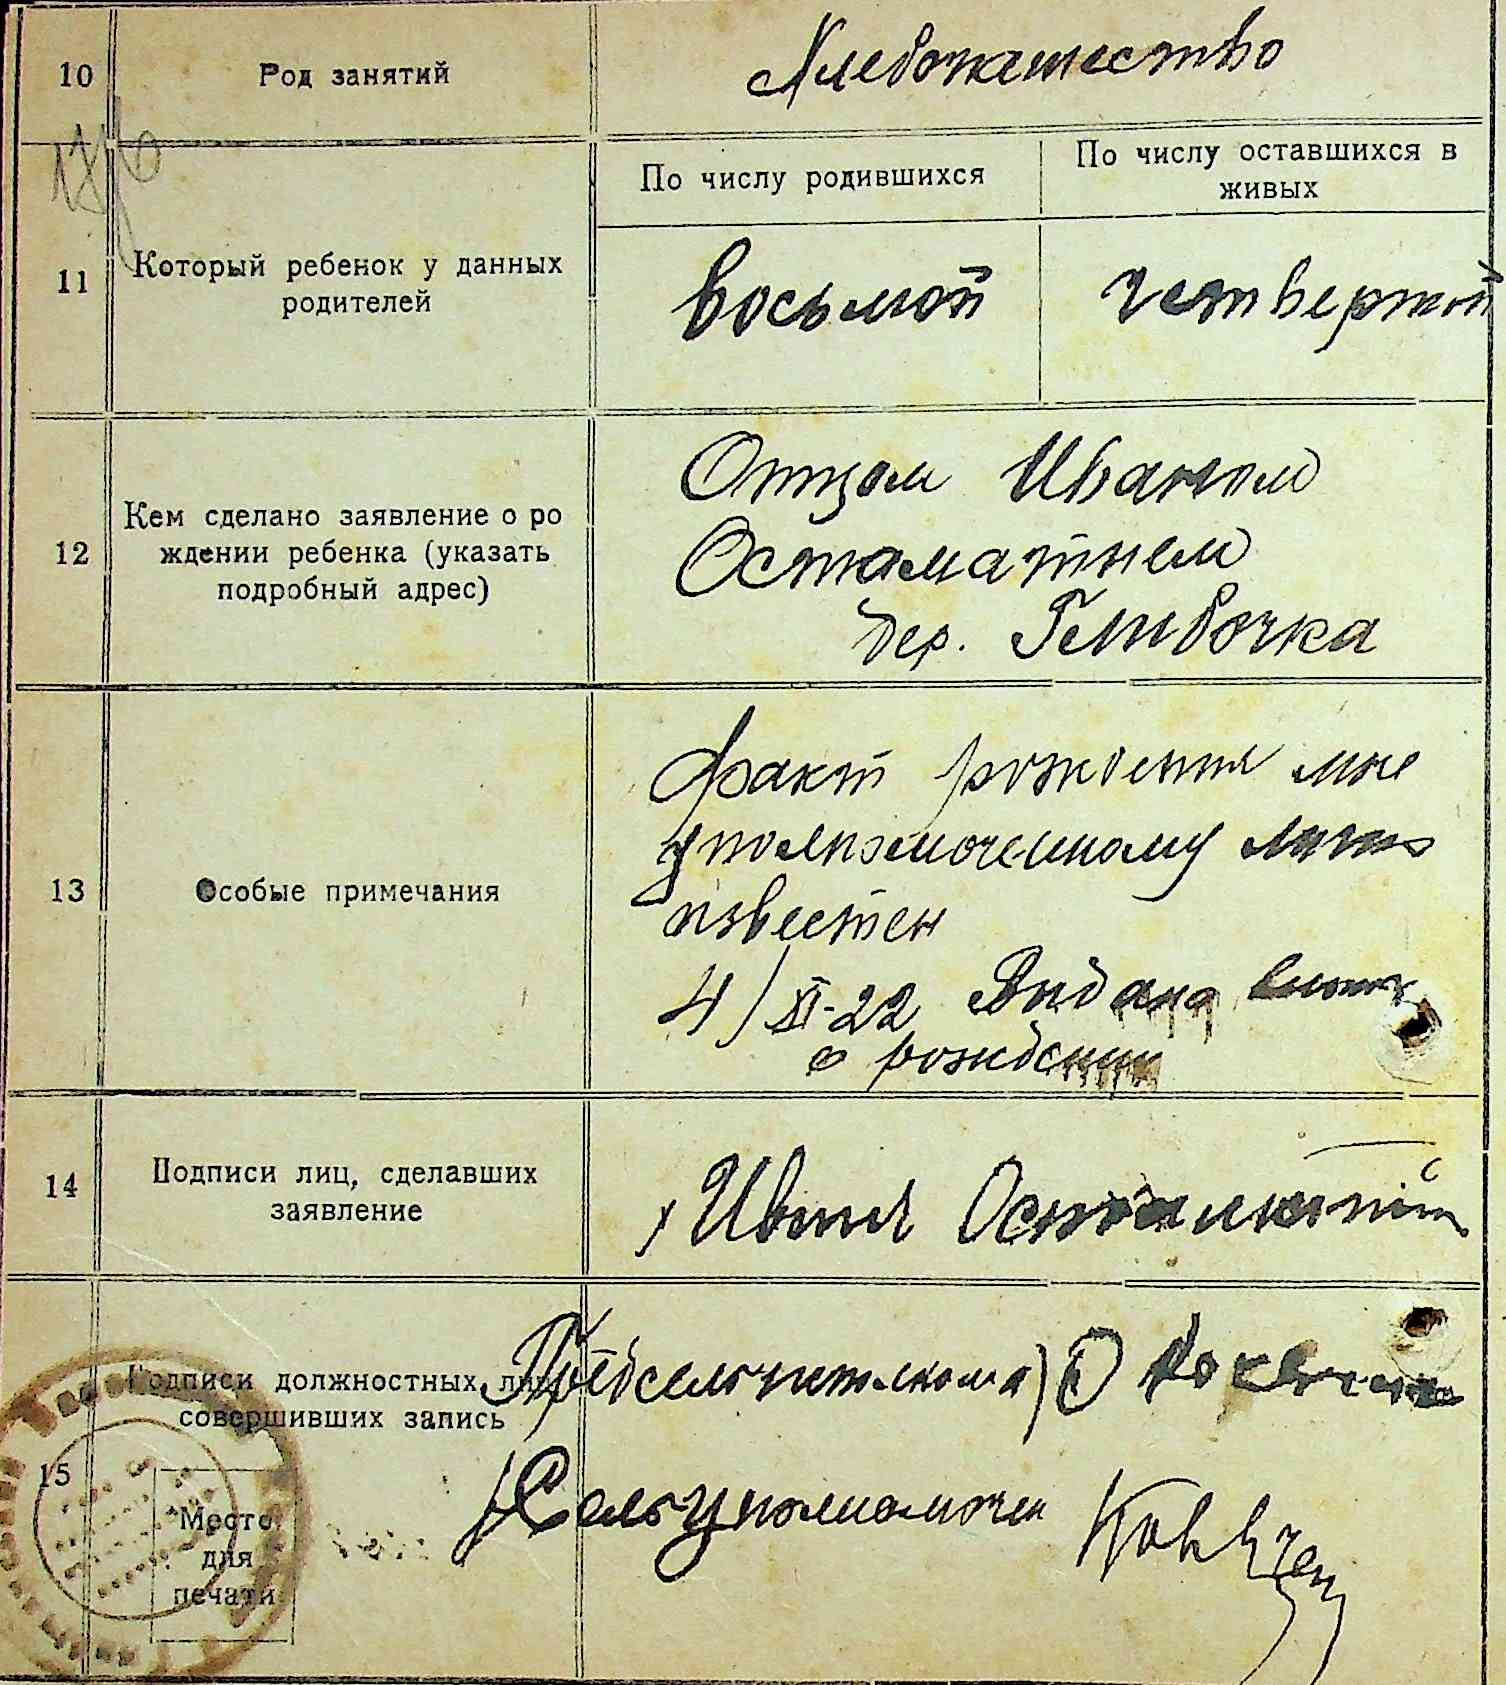 10 Род занятий Хлебопашество
По числу родившихся
По числу оставшихся в
живых
11 Который ребенок у данных
родителей
восьмой четвертой
12 Кем сделано заявление о ро
ждении ребенка (указать
подробный адрес)
Отцом Иваном
Остаматием
дер. Глибочка
13 Особые примечания
факт рождения мне
уполномоченному лично
известен
4/XI-22 Видана
о рождении
14 Подписи лиц, сделавших
заявление
Иван
15 Подписи должностных лиц
совершивших запись
Место
для
печати
Предсельисполкома
Сельуполномочен